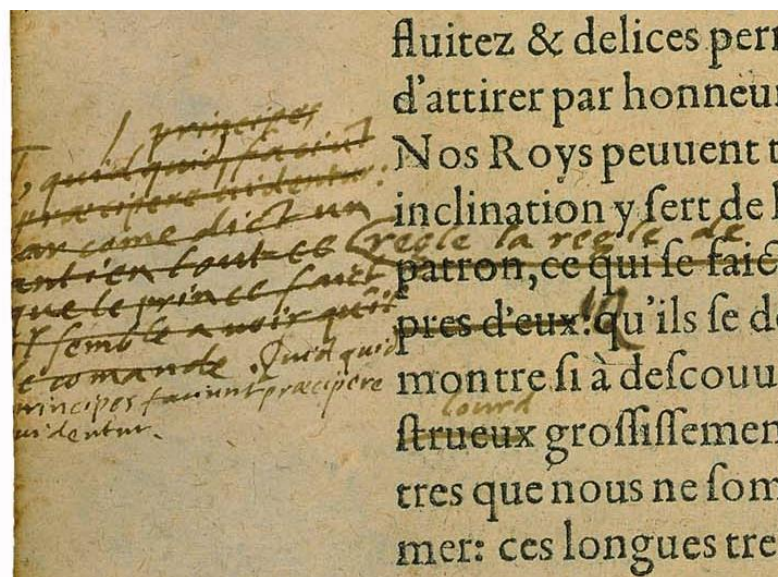 principes
quidquid faciunt
præcipere videntur:
car come dict un
antien tout ce
que le prince faict
il semble avoir qu'il
le comande. Quid quid
principes faciunt præcipere
uidentur.
fluitez & delices per
d'attirer par honneu
Nos Roys peuuent t
inclination y ſert de
regle la regle de
patron, ce qui ſe faic
pres d'eux: qu'ils ſe d
montre ſi à deſcouu
lourd
ſtrueux groſſiſſemen
tres que nous ne ſom
mer: ces longues tre